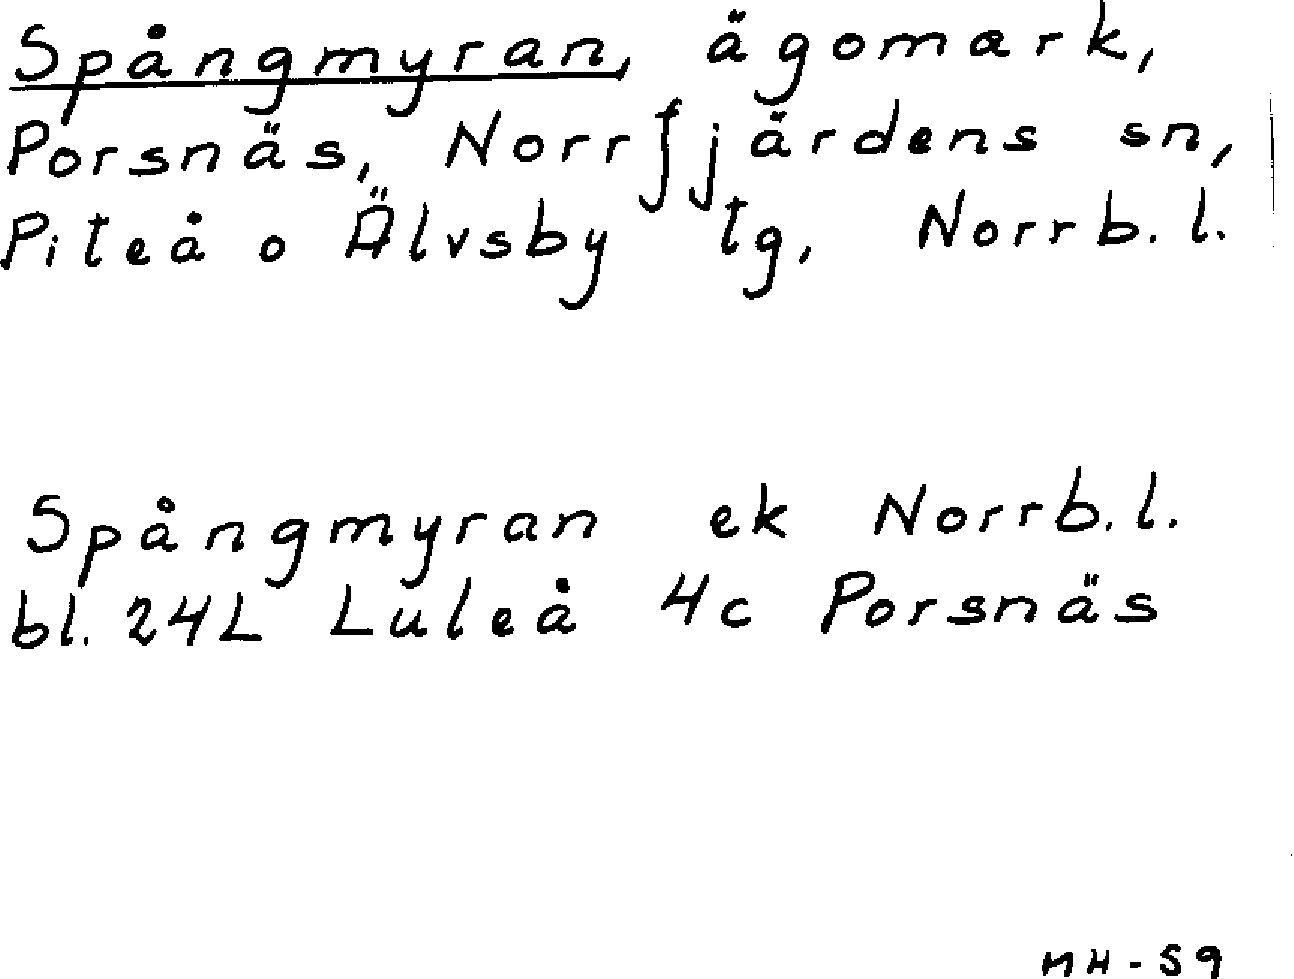 Spångmyran, ägomark,
Porsnäs, Norrfjärdens sn,
Piteå o Älvsby tg, Norrb.l.
Spångmyran ek Norrb.l.
bl. 24L Luleå 4c Porsnäs
MH-59